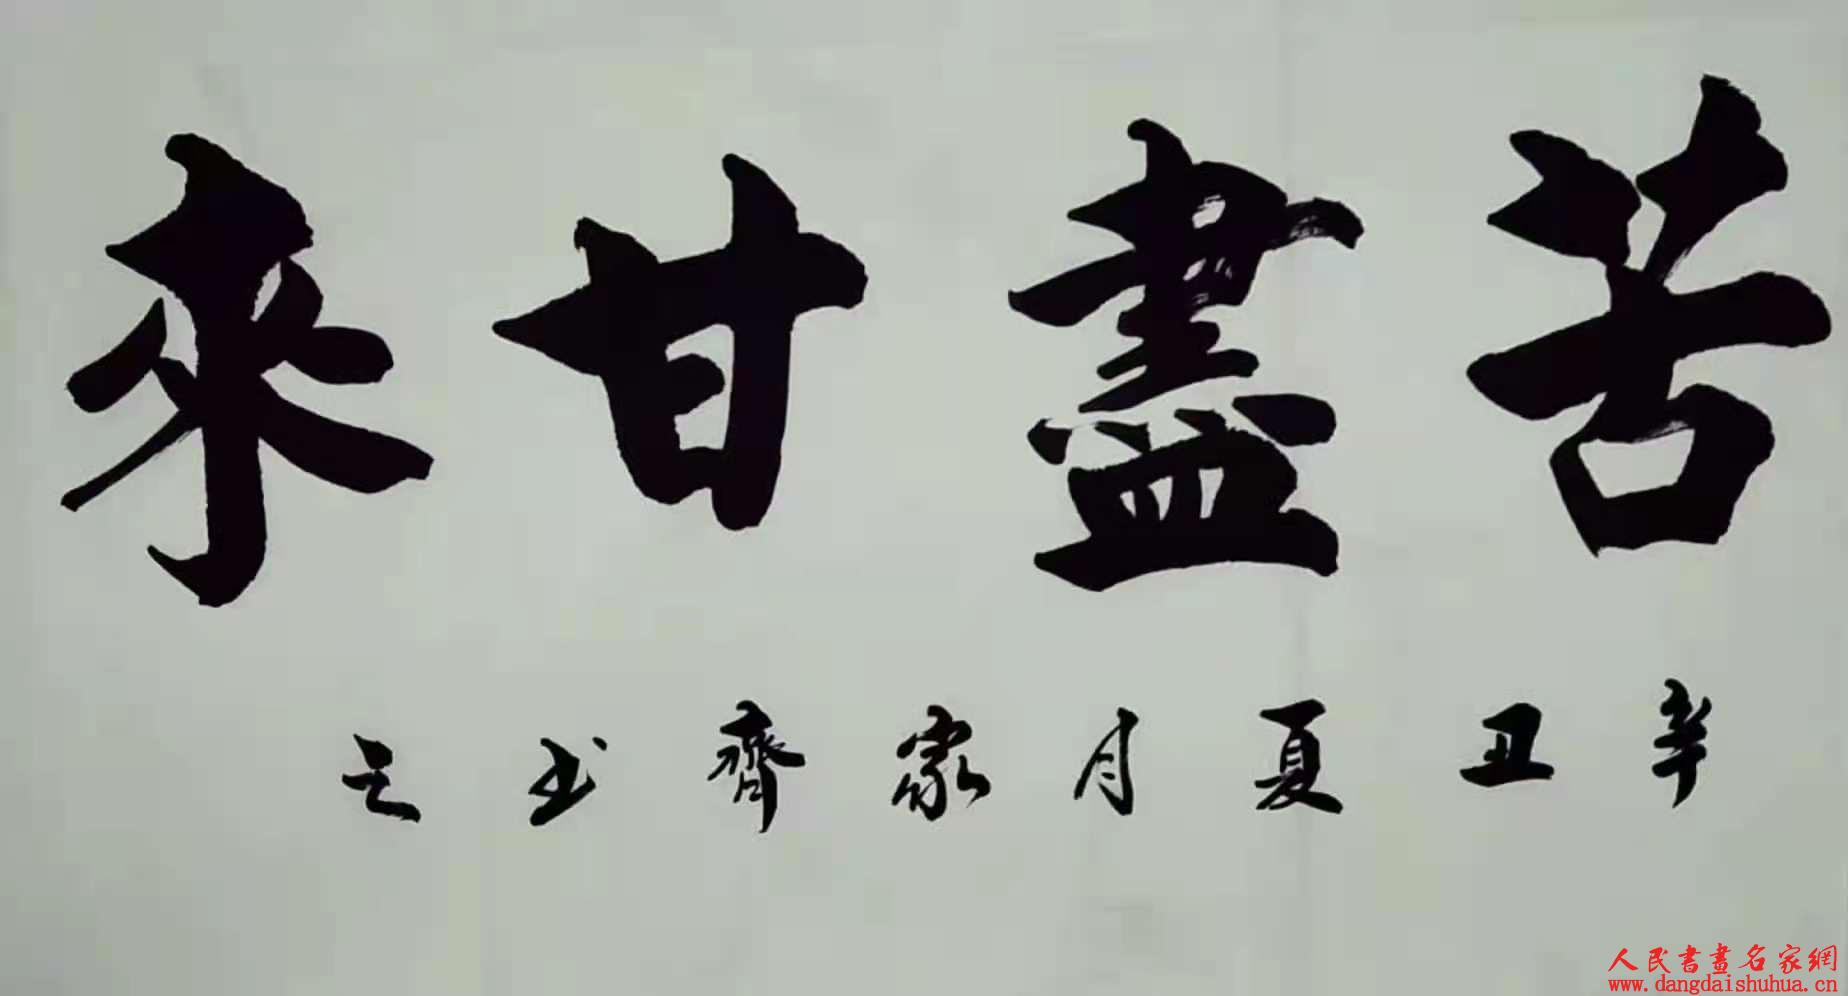 苦盡甘來
辛丑夏月家齊书之
人民書畫名家網
www.dangdaishuhua.cn